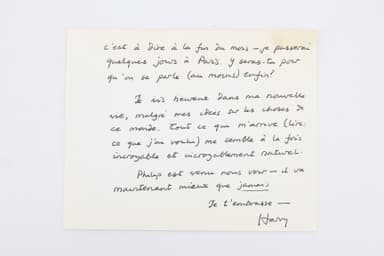 c'est à dire à la fin du mois — je passerai
quelques jours à Paris. Y seras-tu pour
qu'on se parle (au moins) enfin?
Je vis heureux dans ma nouvelle
vie, malgré mes idées sur les choses de
ce monde. Tout ce que m'arrive (lire:
ce que j'ai voulu) me semble à la fois
incroyable et incroyablement naturel.
Philip est venu nous voir — il va
maintenant mieux que jamais
Je t'embrasse —
Harry